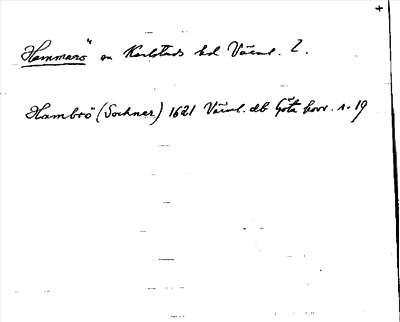 +
Hammarö en Karlstads hd Värml. l.
Hambrö (Sochner) 1621 Värml. db Göta hovr. s. 19